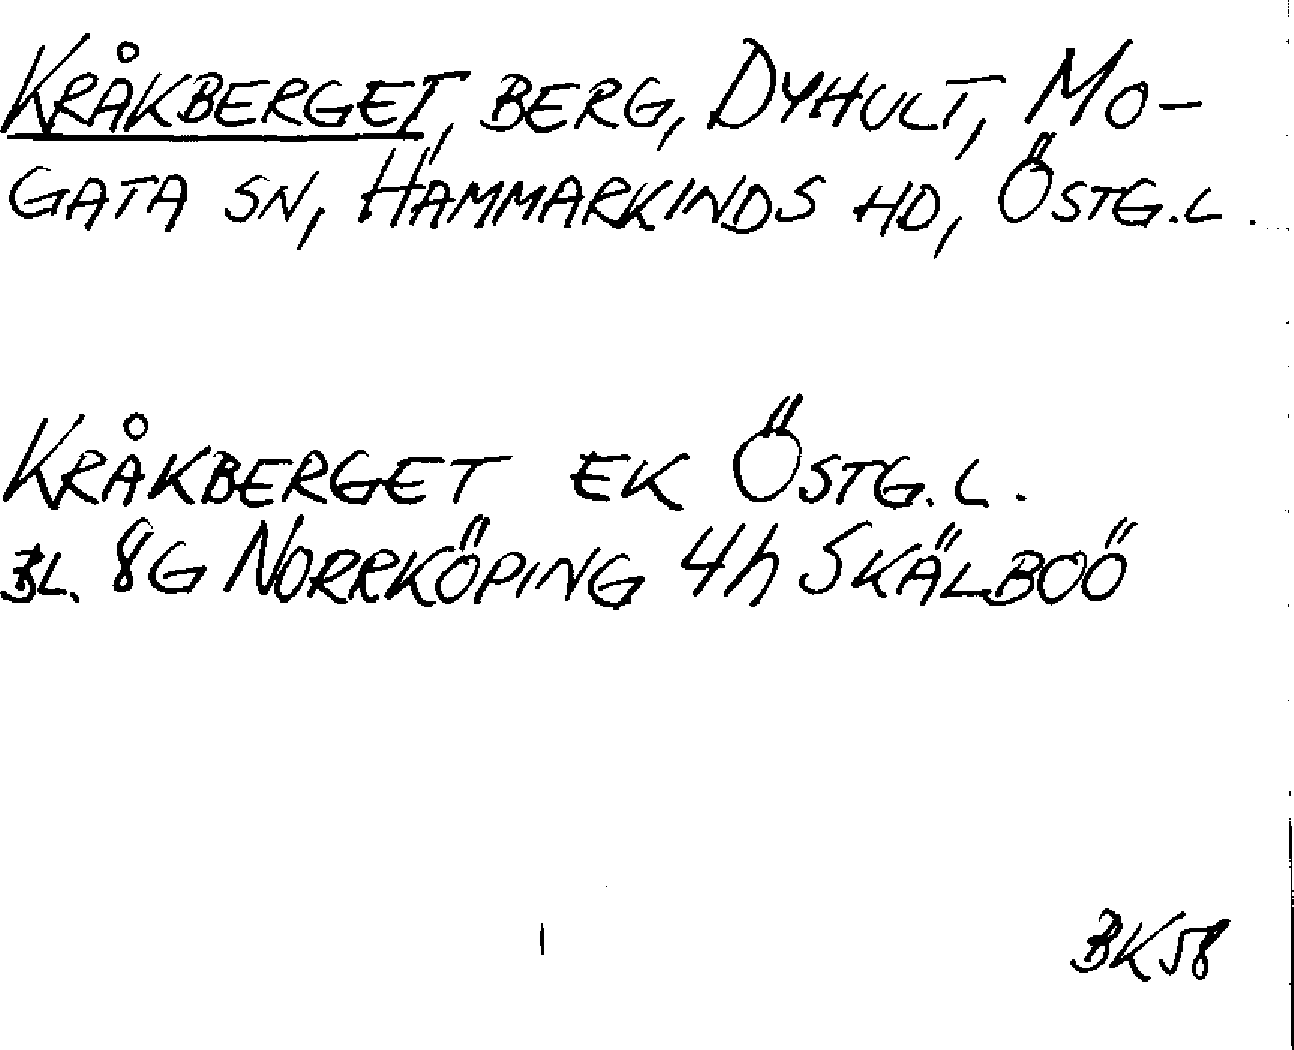 KRÅKBERGET, BERG, DYHULT, MO-
GATA SN, HAMMARKINDS HD, ÖSTG.L.
KRÅKBERGET EK ÖSTG.L.
BL. 8G NORRKÖPING 4h SKÄLBOÖ
BK58